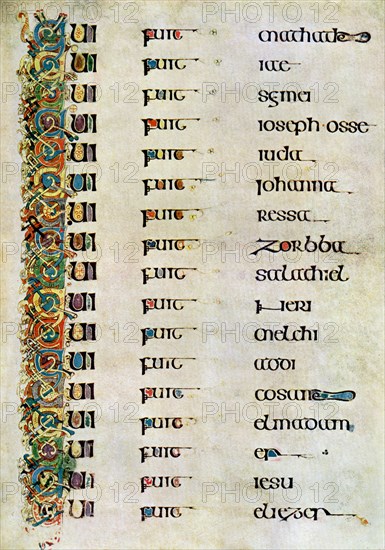 QUI fuit mathathie
QUI fuit iae
QUI fuit semei
QUI fuit ioseph osse
QUI fuit iuda
QUI fuit iohanna
QUI fuit ressa
QUI fuit zorbba
QUI fuit salathiel
QUI fuit neri
QUI fuit melchi
QUI fuit addi
QUI fuit cosam
QUI fuit elmadam
QUI fuit er
QUI fuit iesu
QUI fuit eliezer